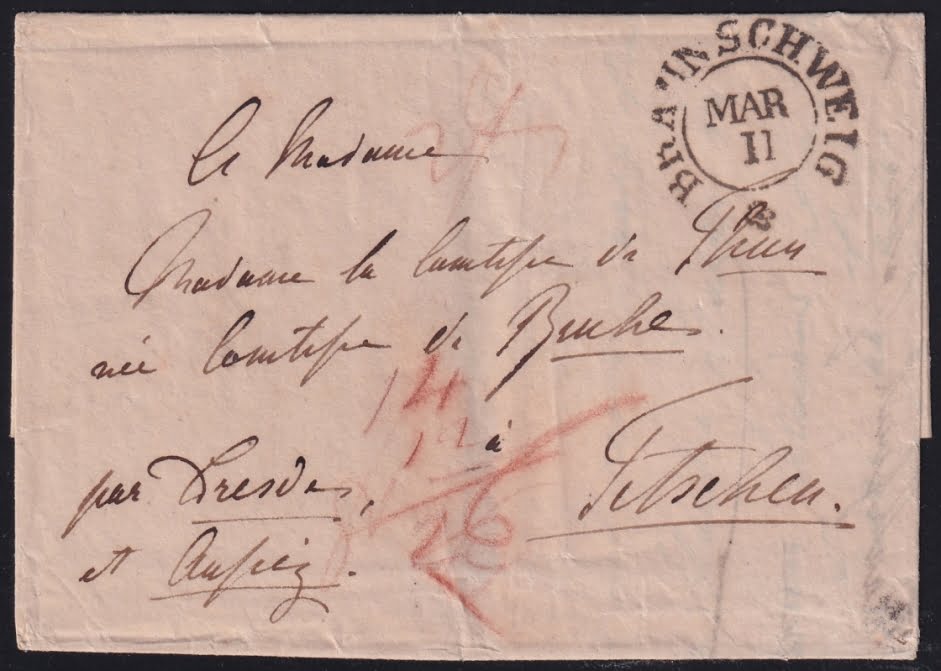 BRAUNSCHWEIG
MAR
11
A Madame
Madame la Comtesse de Thun
née Comtesse de Bruhes.
14
12 à Tetschen.
par Dresde,
26
et Aussig.